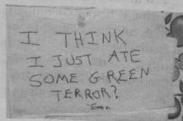 I THINK
I JUST ATE
SOME GREEN
TERROR?